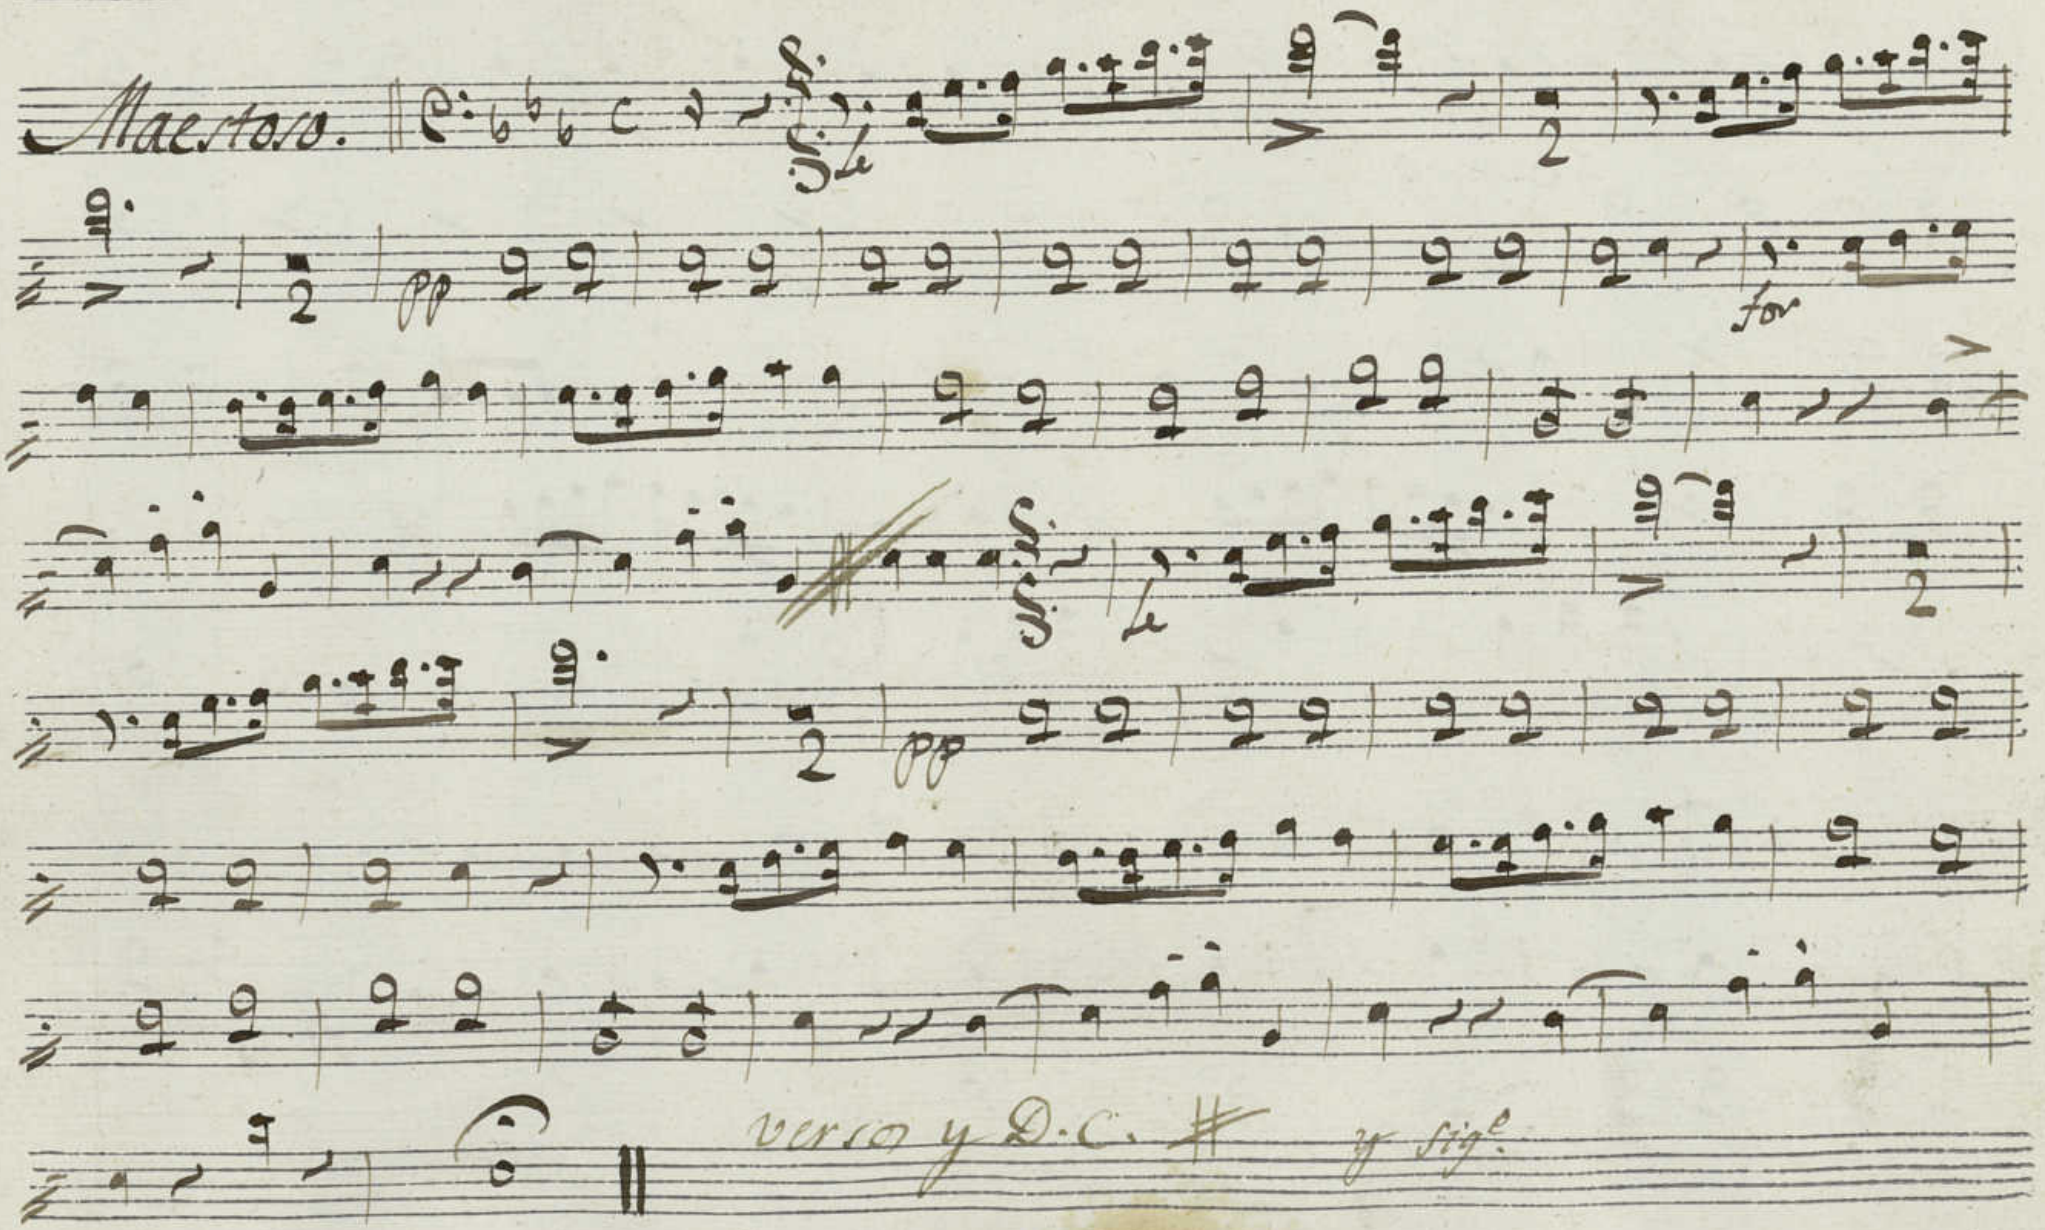 Maestoso.
Le
2
2
pp
for
Le
2
2
pp
verso y D.C. # y sigᵉ.